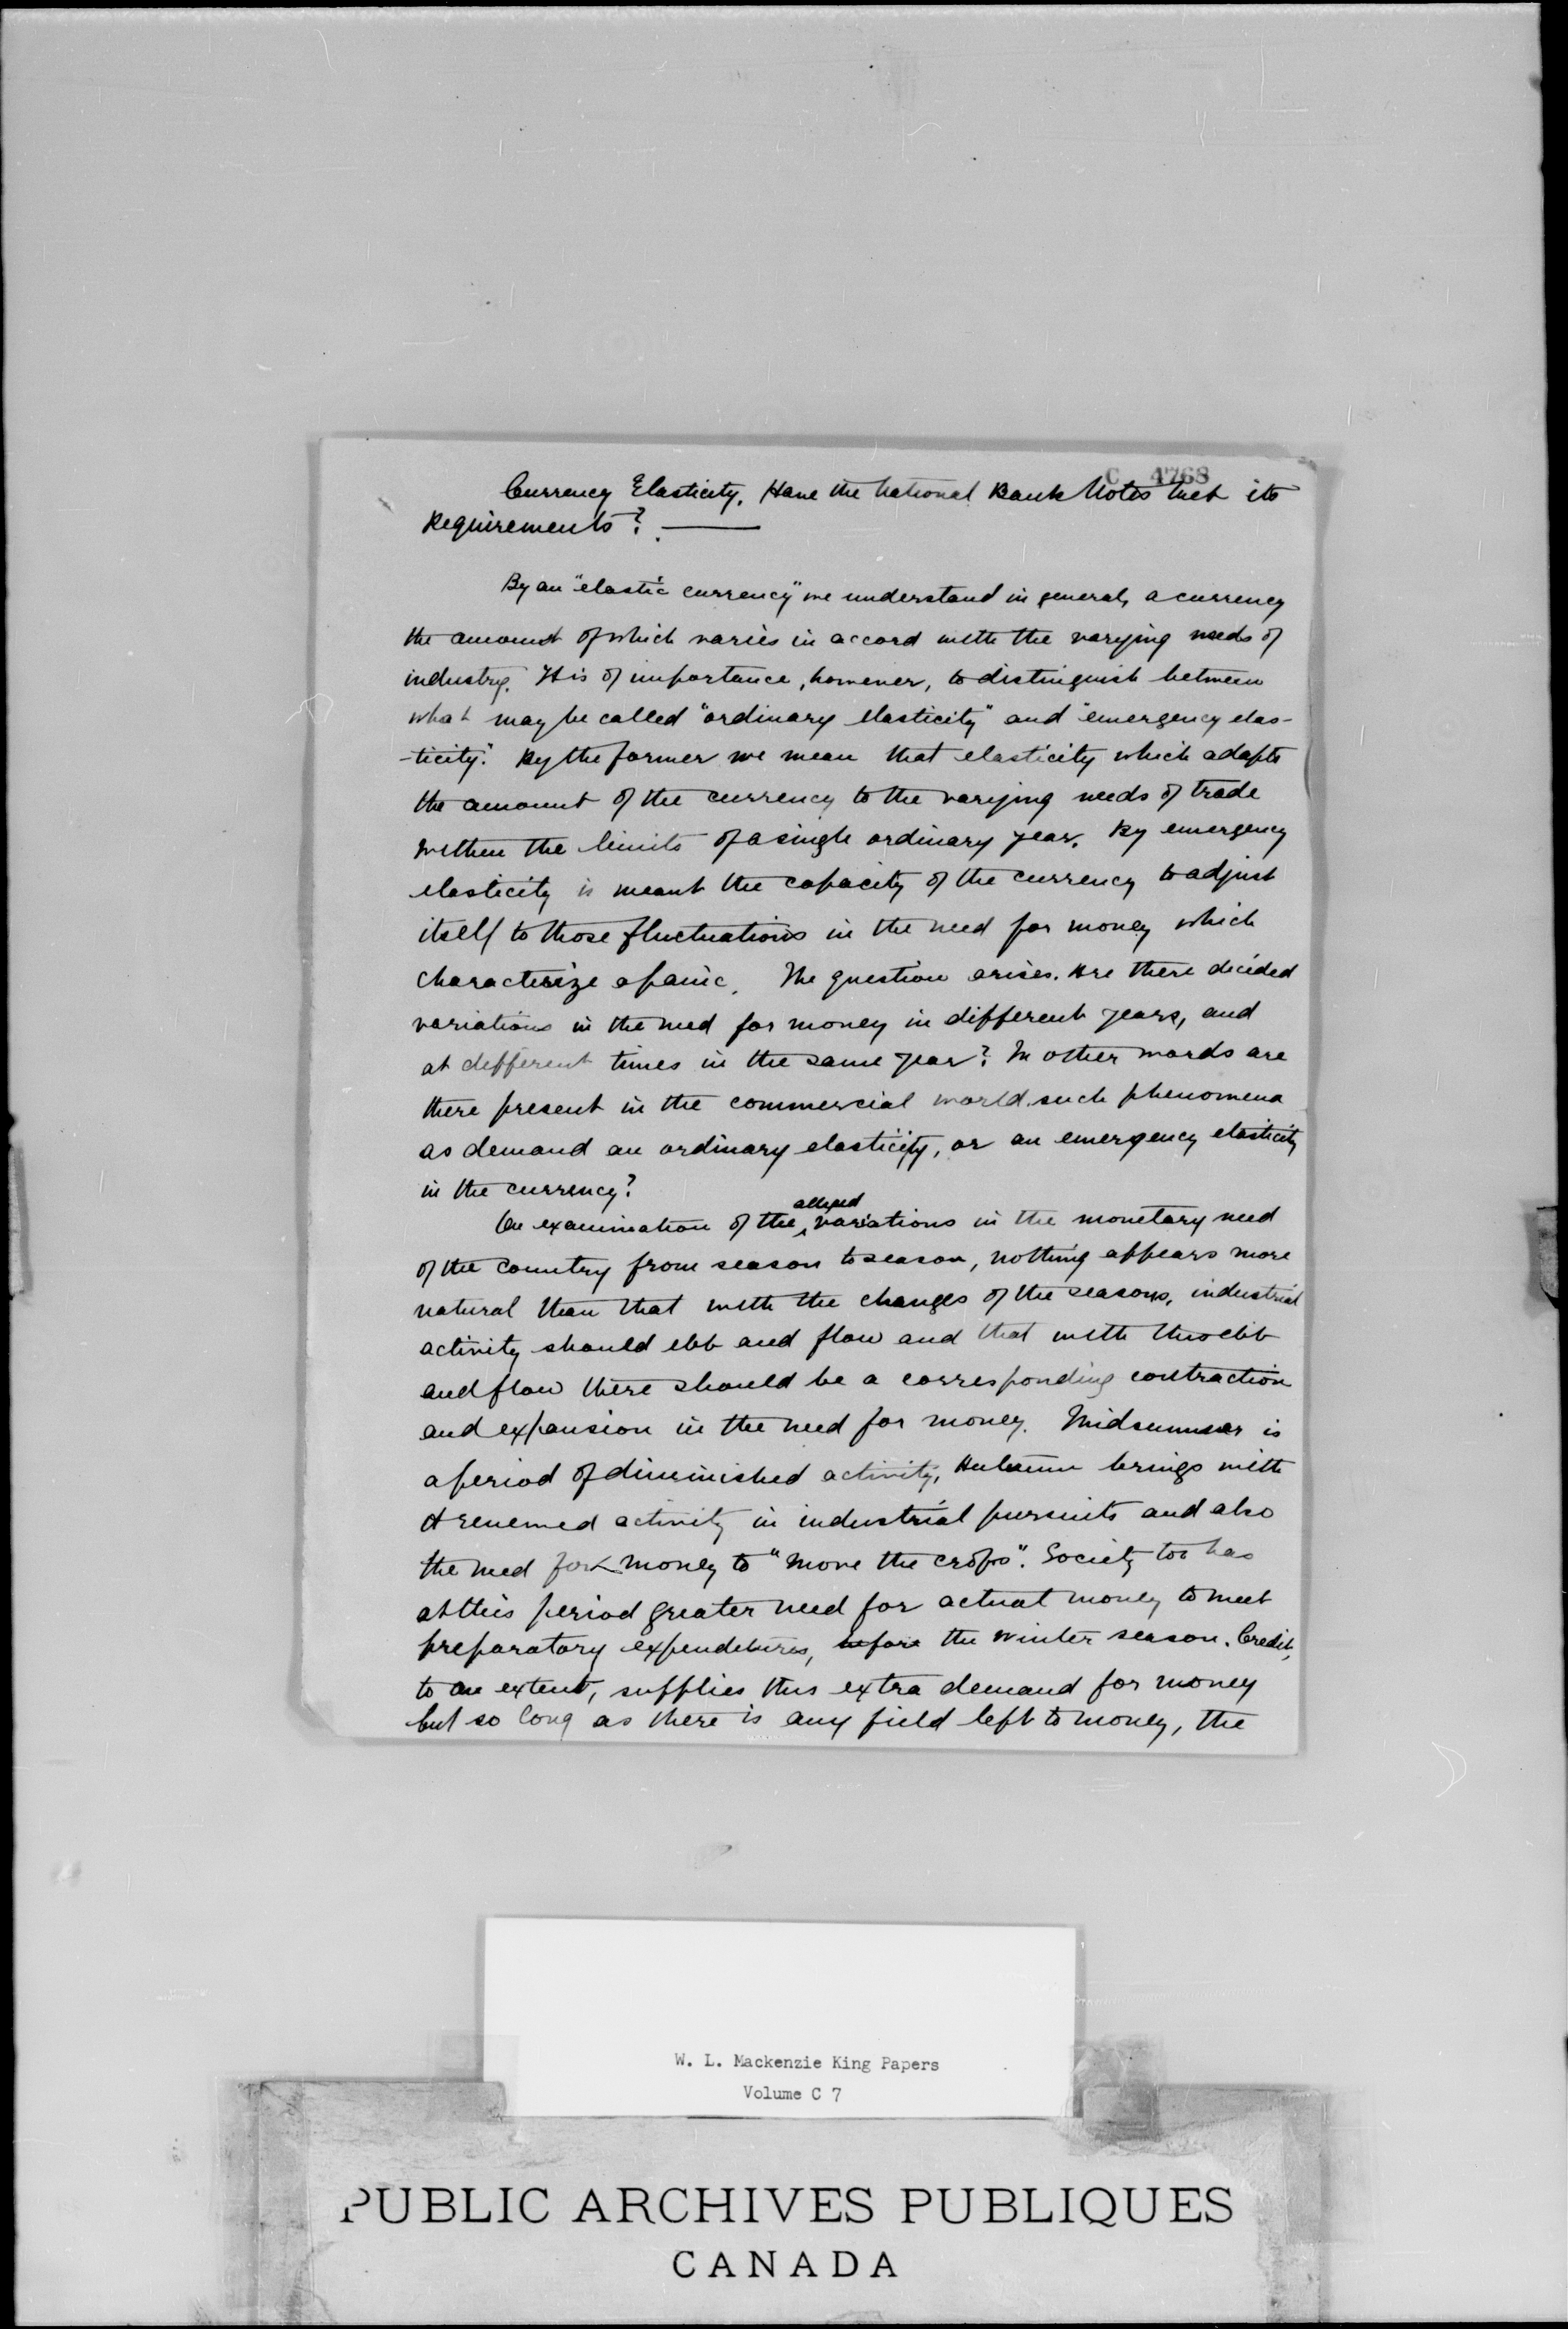 C 4768
Currency Elasticity. Have the National Bank Notes met its
Requirements?
By an "elastic currency" we understand in general, a currency
the amount of which varies in accord with the varying needs of
industry. It is of importance, however, to distinguish between
what may be called "ordinary elasticity" and "emergency elas-
-ticity". By the former we mean that elasticity which adapts
the amount of the currency to the varying needs of trade
within the limits of a single ordinary year. By emergency
elasticity is meant the capacity of the currency to adjust
itself to those fluctuations in the need for money which
characterize a panic. The question arises. Are there decided
variations in the need for money in different years, and
at different times in the same year? In other words are
there present in the commercial world such phenomena
as demand an ordinary elasticity, or an emergency elasticity
in the currency?
On examination of the alleged variations in the monetary need
of the country from season to season, nothing appears more
natural than that with the changes of the seasons, industrial
activity should ebb and flow and that with this ebb
and flow there should be a corresponding contraction
and expansion in the need for money. Midsummer is
a period of diminished activity, Autumn brings with
it renewed activity in industrial pursuits and also
the need for money to "move the crops". Society too has
at this period greater need for actual money to meet
preparatory expenditures, before the winter season. Credit,
to an extent, supplies this extra demand for money
but so long as there is any field left to money, the
W. L. Mackenzie King Papers
Volume C 7
PUBLIC ARCHIVES PUBLIQUES
CANADA